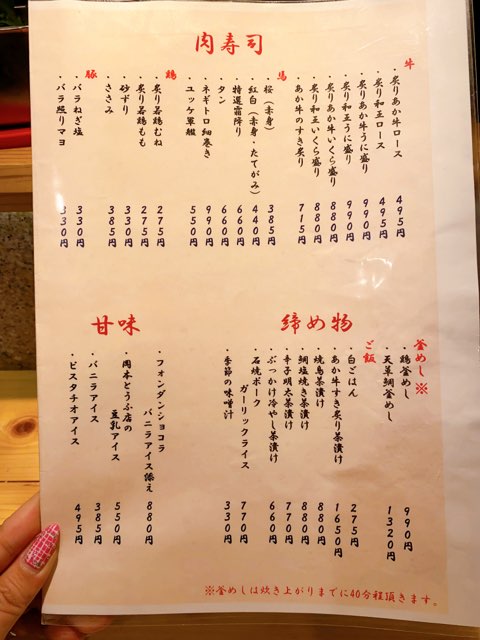 肉寿司
牛
・炙りあか牛ロース 495円
・炙り和王ロース 495円
・炙りあか牛うに盛り 990円
・炙り和王うに盛り 990円
・炙りあか牛いくら盛り 880円
・炙り和王いくら盛り 880円
・あか牛のすき炙り 715円
馬
・桜(赤身) 385円
・紅白(赤身・たてがみ) 440円
・特選霜降り 660円
・タン 660円
・ネギトロ細巻き 990円
・ユッケ軍艦 550円
鶏
・炙り若鶏むね 275円
・炙り若鶏もも 275円
・砂ずり 330円
・ささみ 385円
豚
・バラねぎ塩 330円
・バラ照りマヨ 330円
締め物
釜めし※
・鶏釜めし 990円
・天草鯛釜めし 1320円
ご飯
・白ごはん 275円
・あか牛すき炙り茶漬け 1650円
・焼鳥茶漬け 880円
・鯛塩焼き茶漬け 880円
・辛子明太茶漬け 770円
・ぶっかけ冷やし茶漬け 660円
・石焼ポーク
ガーリックライス 770円
・季節の味噌汁 330円
甘味
・フォンダンショコラ
バニラアイス添え 880円
・岡本とうふ店の
豆乳アイス 550円
・バニラアイス 385円
・ピスタチオアイス 495円
※釜めしは炊き上がりまでに40分程頂きます。